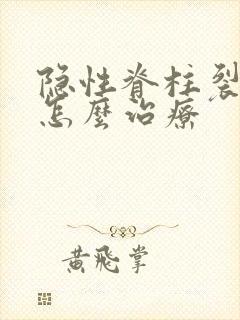 隐性脊柱裂
怎麽治療
黄飛掌